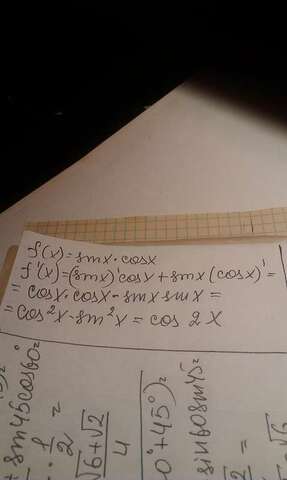 f(x)=sinx·cosx
f'(x)=(sinx)'cosx+sinx(cosx)'=
= cosx·cosx-sinx sinx=
= cos²x-sin²x = cos 2x
sin45cos60°
· 1/2 =
√6+√2
4
0°+45°)=
sin60sin45=